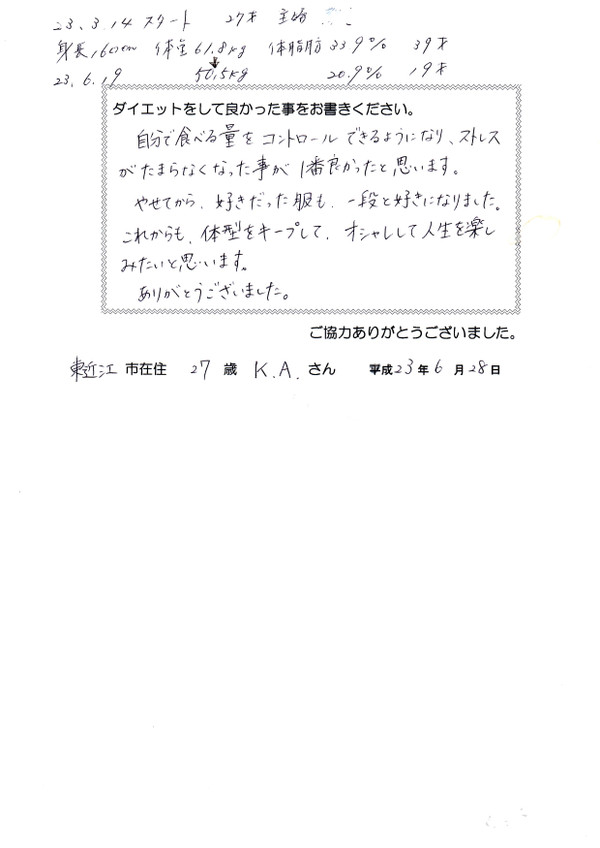 23.3.14 スタート 27才 主婦
身長160cm 体重61.8kg 体脂肪33.9% 39才
23.6.19 50.5kg 20.9% 19才
ダイエットをして良かった事をお書きください。
自分で食べる量をコントロールできるようになり、ストレス
がたまらなくなった事が1番良かったと思います。
やせてから、好きだった服も、一段と好きになりました。
これからも、体型をキープして、オシャレして人生を楽し
みたいと思います。
ありがとうございました。
ご協力ありがとうございました。
東近江 市在住 27 歳 K.A. さん 平成23年6月28日